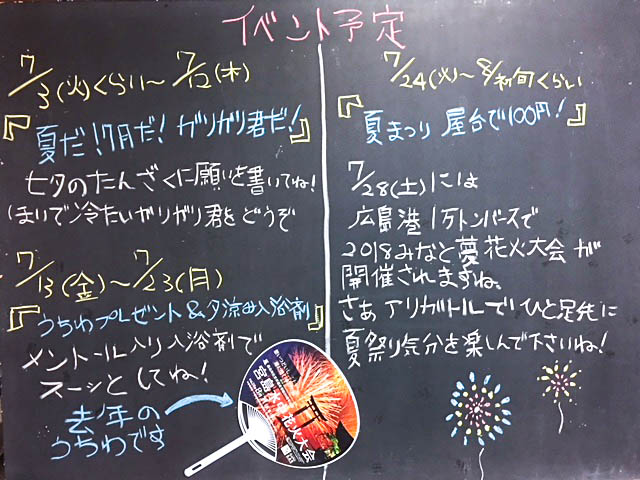 イベント予定
7/3(火)くらい〜7/12(木)
『夏だ!7月だ!ガリガリ君だ!』
七夕のたんざくに願いを書いてね!
ほいで冷たいガリガリ君をどうぞ
7/13(金)〜7/23(月)
『うちわプレゼント&夕涼み入浴剤』
メントール入り入浴剤で
スーッとしてね!
去年の
うちわです
宮島水中花火大会
7/24(火)〜8/初旬くらい
『夏まつり 屋台で100円!』
7/28(土)には
広島港1万トンバースで
2018みなと夢花火大会が
開催されますね。
さぁアリガトルでひと足先に
夏祭り気分を楽しんで下さいね!